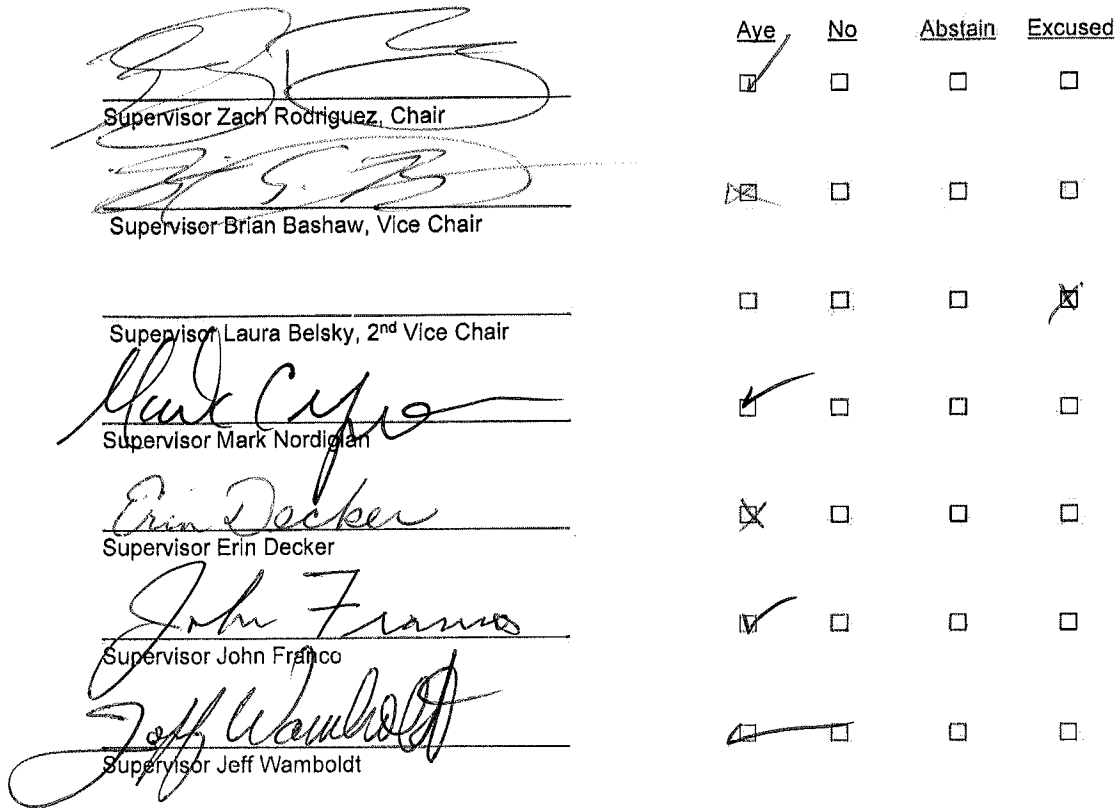 Aye No Abstain Excused
Supervisor Zach Rodriguez, Chair
Supervisor Brian Bashaw, Vice Chair
Supervisor Laura Belsky, 2nd Vice Chair
Mark
Supervisor Mark Nordigian
Erin Decker
Supervisor Erin Decker
John Franco
Supervisor John Franco
Jeff Wamboldt
Supervisor Jeff Wamboldt